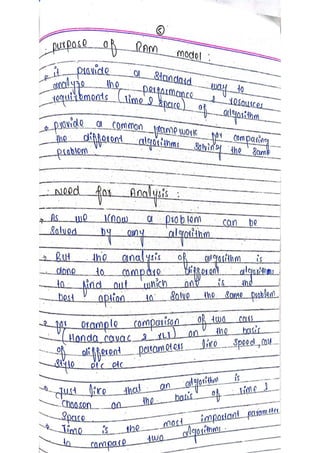 Purpose of RAM model :
it provide a standard way to
analyze the performance & resources
requirements (time & space) of algorithm
provide a common framework for comparing
the different algorithms solving the same
problem
Need for Analysis :
As we know a problem can be
solved by any algorithm
But the analysis of algorithm is
done to compare different algorithms
to find out which one is the
best option to solve the same problem
for example comparison of two cars
(Honda & ) on the basis
of different parameters like speed, cost
style etc etc
Just like that an algorithm is
choosen on the basis of time &
space
Time is the most important parameter
to compare two algorithms.